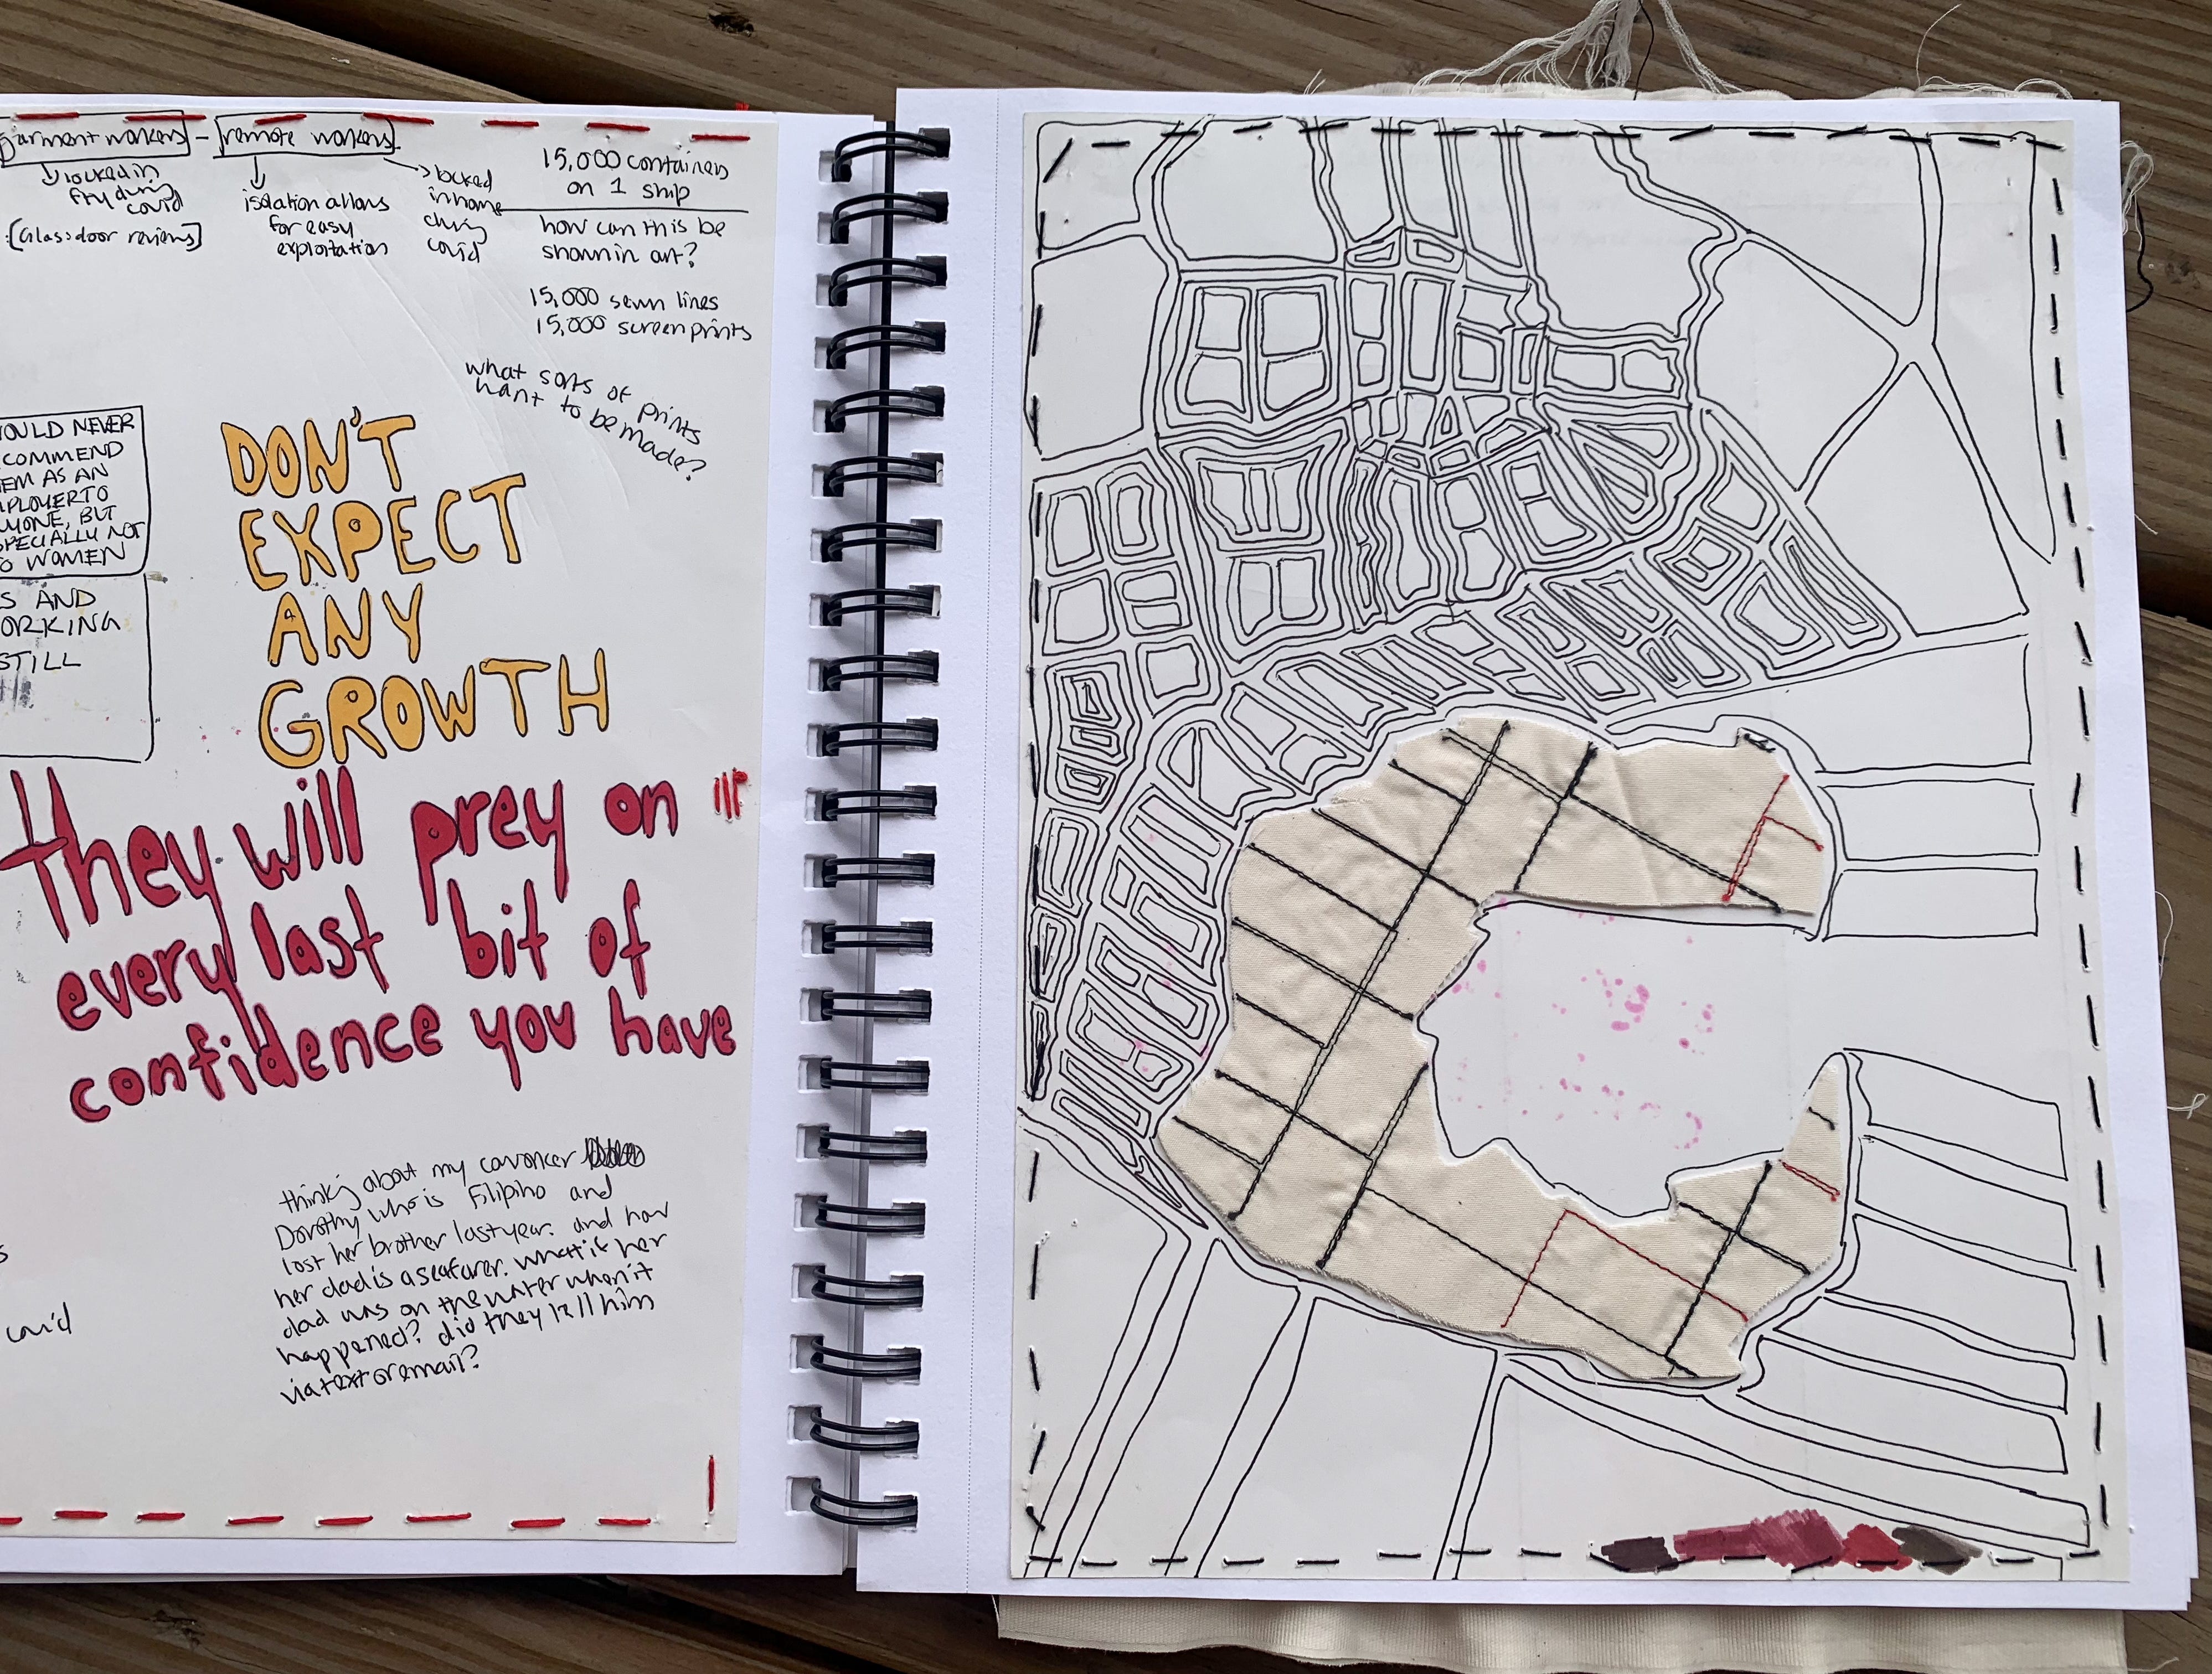 garment workers - remote workers
↓ locked in
fty during
covid
[Glassdoor reviews]
↓
isolation allows
for easy
exploitation
→ locked
in home
during
covid
15,000 containers
on 1 ship
how can this be
shown in art?
15,000 sewn lines
15,000 screenprints
what sorts of prints
want to be made?
OULD NEVER
COMMEND
EM AS AN
MPLOYER TO
YONE, BUT
SPECIALLY NOT
O WOMEN
S AND
ORKING
STILL
DON'T
EXPECT
ANY
GROWTH
they will prey on
every last bit of
confidence you have
thinking about my coworker
Dorothy who is Filipino and
lost her brother last year. and how
her dad is a seafarer. what if her
dad was on the water when it
happened? did they tell him
via text or email?
s